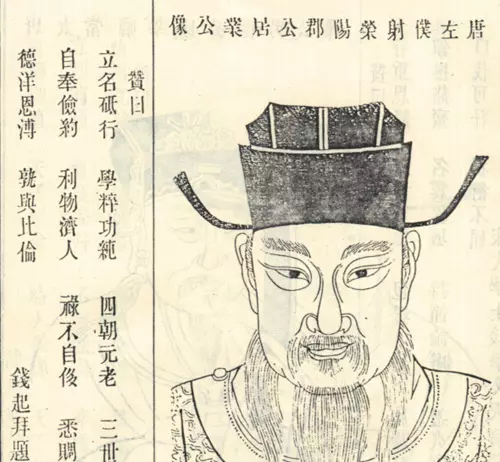 唐左僕射榮陽郡公居業公像
贊曰
立名砥行 學粹功純 四朝元老 三世
自奉儉約 利物濟人 祿不自後 悉賙
德洋恩溥 孰與比倫
錢起拜題